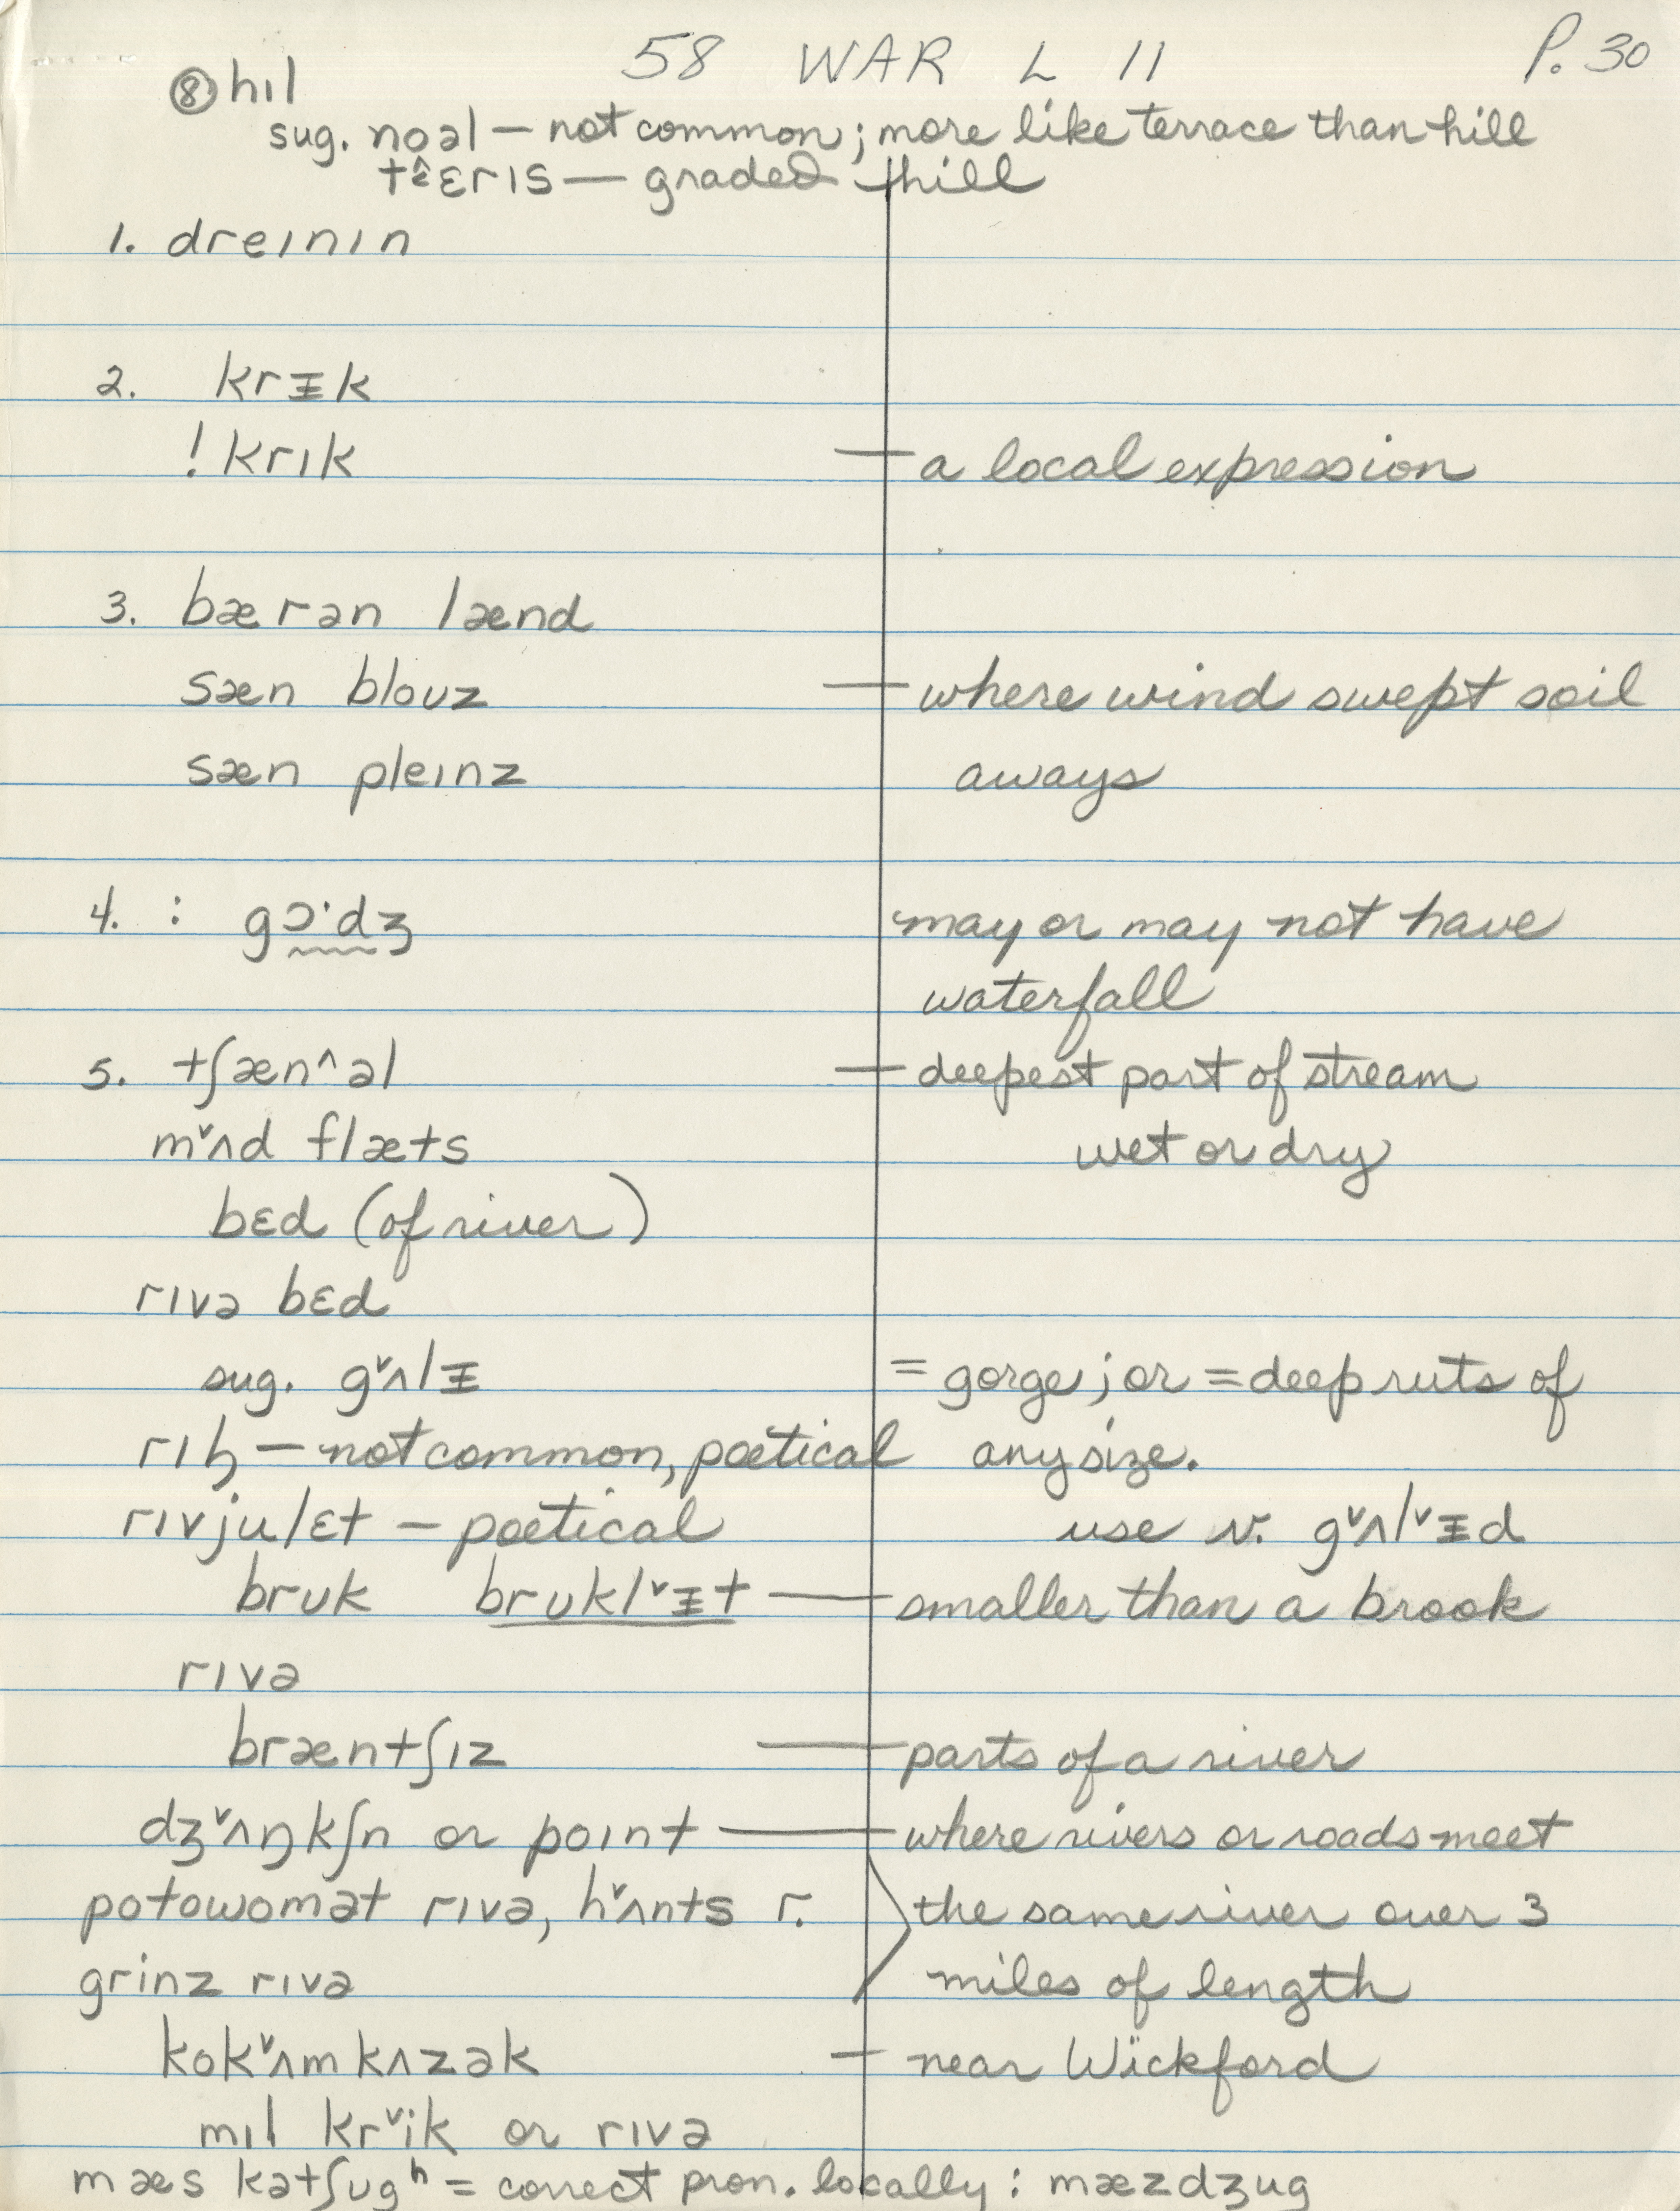 58 WAR L 11 P. 30
⑧ hɪl
sug. noəl — not common; more like terrace than hill
tɛ̂rɪs — graded hill
1. dreɪnɪn
2. krᵻk
! krɪk — a local expression
3. bærən lænd
sæn bloʊz — where wind swept soil
sæn pleɪnz aways
4. : gɔ·dʒ may or may not have
waterfall
5. tʃæn^əl — deepest part of stream
mˇʌd flæts wet or dry
bɛd (of river)
rɪvə bɛd
sug. gˇʌlᵻ = gorge; or = deep ruts of
rɪ — not common, poetical any size.
rɪvjulɛt — poetical use v. gˇʌlˇᵻd
brʊk brʊklˇᵻt — smaller than a brook
rɪvə
bræntʃɪz — parts of a river
dʒˇʌŋkʃn or poɪnt — where rivers or roads meet
potowomət rɪvə, hˇʌnts r. the same river over 3
grinz rɪvə miles of length
kokˇʌmkʌzək — near Wickford
mɪl krˇik or rɪvə
mæs kətʃugʰ = correct pron. locally : mæzdʒug